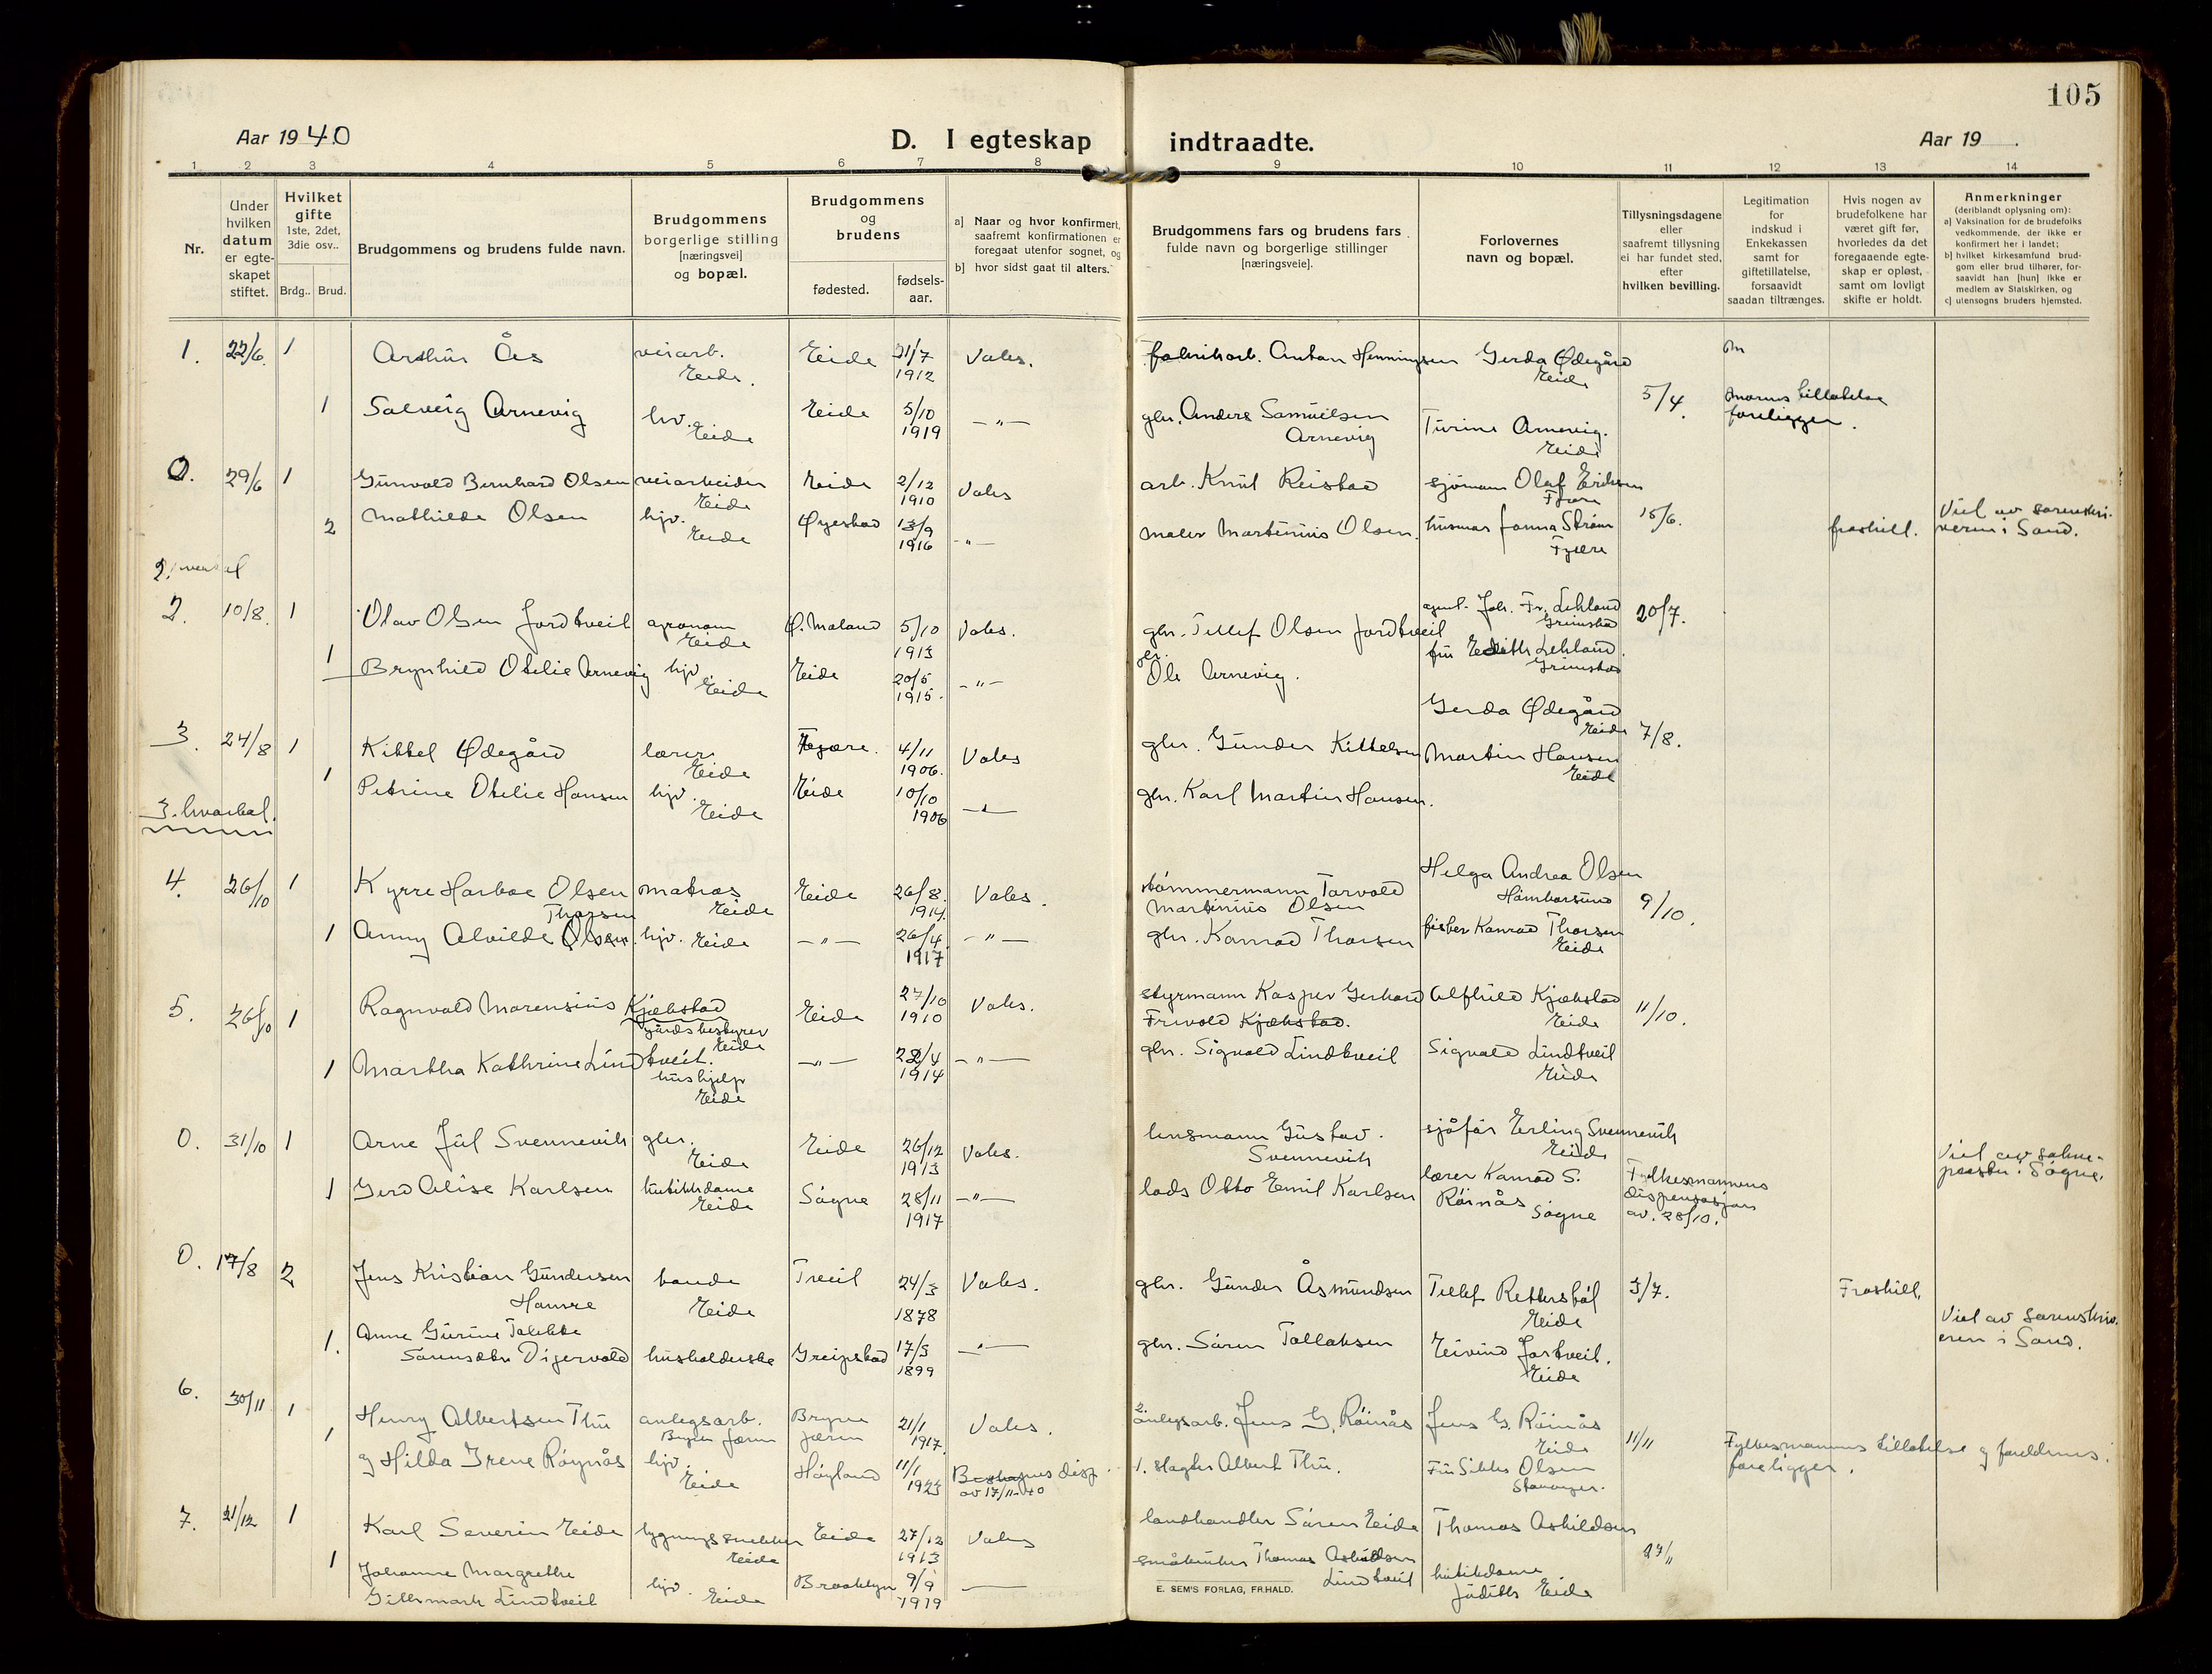 105
Aar 1940
D. I egteskap indtraadte.
Aar 19
1. 2 3 4 5 6 7 8 9 10 11 12 13 14
Nr.
Under hvilken datum er egteskapet stiftet.
Hvilket gifte 1ste, 2det, 3die osv..
Brdg.. Brud.
Brudgommens og brudens fulde navn.
Brudgommens borgerlige stilling [næringsvei] og bopæl.
Brudgommens og brudens
fødested.
fødsels-aar.
a] Naar og hvor konfirmert, saafremt konfirmationen er foregaat utenfor sognet, og
b] hvor sidst gaat til alters.
Brudgommens fars og brudens fars fulde navn og borgerlige stillinger [næringsveie].
Forlovernes navn og bopæl.
Tillysningsdagene eller saafremt tillysning ei har fundet sted, efter hvilken bevilling.
Legitimation for indskud i Enkekassen samt for giftetillatelse, forsaavidt saadan tiltrænges.
Hvis nogen av brudefolkene har været gift før, hvorledes da det foregaaende egteskap er opløst, samt om lovligt skifte er holdt.
Anmerkninger (deriblandt oplysning om):
a) Vaksination for de brudefolks vedkommende, der ikke er konfirmert her i landet;
b) hvilket kirkesamfund brudgom eller brud tilhører, forsaavidt han [hun] ikke er medlem av Statskirken, og
c) utensogns bruders hjemsted.
1. 22/6 1 Arthur Ås veiarb. Eide. Eide 31/7 1912 Vaks. fabrikarb. Anton Henningsen Gerda Ødegård Eide
1 Solveig Arnevig hv. Eide Eide 5/10 1919 —"— gbr. Anders Samuelsen Arnevig Turine Arnevig. Eide 5/4. morens tillatelse foreligger.
0. 29/6 1 Gunvald Bernhard Olsen veiarbeider Eide Eide 2/12 1910 Vaks arb. Knut Reistad sjømann Olaf Eriksen Fjære
2 Mathilde Olsen hjv. Eide Øyestad 13/9 1916 —"— maler Martinius Olsen. husmor Jonna Strøm Fjære 15/6. fraskill. Viet av sorenskriveren i Sand.
2. kvartal
2. 10/8. 1 Olav Olsen Jordtveit agronom Eide Ø. Moland 5/10 1913 Vaks. gbr. Tellef Olsen Jordtveit agent. Joh. Fr. Lekland Grimstad 20/7.
1 Brynhild Otelie Arnevig hjv. Eide Eide 20/5 1915. —"— gbr. Ole Arnevig. fru Edith Lekland. Grimstad
3. 24/8 1 Kittel Ødegård lærer Eide Fjære. 4/11 1906. Vaks gbr. Gunder Kittelsen Gerda Ødegård Eide 7/8.
1 Petrine Otelie Hansen hjv. Eide Eide 10/10 1906 —"— gbr. Karl Martin Hansen. Martin Hansen Eide
3. kvartal.
4. 26/10 1 Kyrre Harboe Olsen matros Eide Eide 26/8. 1914. Vaks. tømmermann Torvald Martinius Olsen Helga Andrea Olsen Homborsund 9/10.
1 Anny Alvilde Olsen Thorsen hjv. Eide —"— 26/4 1917 —"— gbr. Konrad Thorsen fisker Konrad Thorsen Eide
5. 26/10 1 Ragnvald Marensius Kjækstad gårdsbestyrer Eide Eide 27/10 1910 Vaks. styrmann Kasper Gerhard Frivold Kjækstad. Alfhild Kjækstad Eide 11/10.
1 Martha Kathrine Lindtveit. hushjelp Eide —"— 28/4 1914 —"— gbr. Sigvald Lindtveit Sigvald Lindtveit Eide
0. 31/10 1 Arne Jul Svennevik gbr. Eide Eide 26/12 1913 Vaks. lensmann Gustav Svennevik sjåfør Erling Svennevik Eide
1 Gerd Alise Karlsen butikkdame Eide Søgne 28/11 1917 —"— lods Otto Emil Karlsen lærer Konrad S. Røinås Søgne Fylkesmannens dispensasjon av. 28/10. Viet av soknepresten i Søgne.
0. 17/8 2 Jens Kristian Gundersen Hamre bonde Eide Treit 24/3 1878 Vaks. gbr. Gunder Åsmundsen Tellef Rettersbøl Eide 3/7. Fraskill. Viet av sorenskriveren i Sand.
1. Anne Gurine Sørensdtr Digervold husholderske Greipstad 17/3 1899 —"— gbr. Søren Tallaksen Eivind Jortveit. Eide
6. 30/11 1 Henry Albertsen Thu anlegsarb. Bryne Jæren Bryne Jæren 21/1 1917. Vaks. 2. anlegsarb. Jens G. Röinås Jens G. Röinås Eide 11/11 Fylkesmannens tillatelse og foreldrenes foreligger.
1 g Hilda Irene Röynås hjv. Eide Høyland 11/1 1923 Biskopens disp. av 17/11-40 1. slagter Albert Thu. Fru Sikke Olsen Stavanger.
7. 21/12 1 Karl Severin Eide bygningssnekker Eide Eide 27/12 1913 Vaks landhandler Søren Eide Thomas Askildsen 27/11
1 Johanne Margrethe Gillsmark Lindtveit hjv. Eide Brooklyn 9/9 1919 — småbruker Thomas Askildsen Lindtveit butikdame Judith Eide
E. SEM'S FORLAG, FR.HALD.